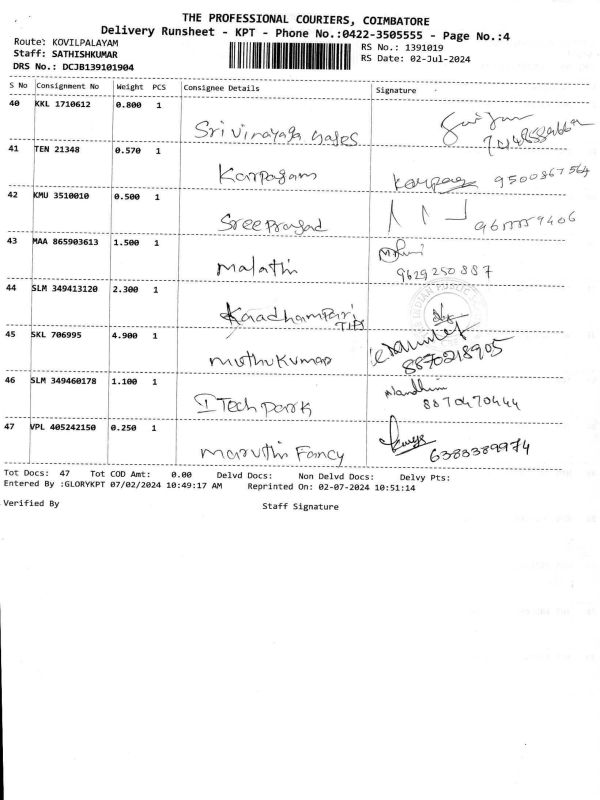 THE PROFESSIONAL COURIERS, COIMBATORE
Delivery Runsheet - KPT - Phone No.:0422-3505555 - Page No.:4
Route: KOVILPALAYAM
Staff: SATHISHKUMAR
DRS No.: DCJB139101904
RS No.: 1391019
RS Date: 02-Jul-2024
S No Consignment No Weight PCS Consignee Details Signature
40 KKL 1710612 0.800 1
Sri Vinayaga
41 TEN 21348 0.570 1
Karpagam 9500867564
42 KMU 3510010 0.500 1
Sree Prasad
43 MAA 865903613 1.500 1
Malathi 9629250887
44 SLM 349413120 2.300 1
45 SKL 706995 4.900 1
Muthukumar 8870218905
46 SLM 349460178 1.100 1
I Tech park 8870470444
47 VPL 405242150 0.250 1
Maruthi Fancy 6383389974
Tot Docs: 47 Tot COD Amt: 0.00 Delvd Docs: Non Delvd Docs: Delvy Pts:
Entered By :GLORYKPT 07/02/2024 10:49:17 AM Reprinted On: 02-07-2024 10:51:14
Verified By Staff Signature